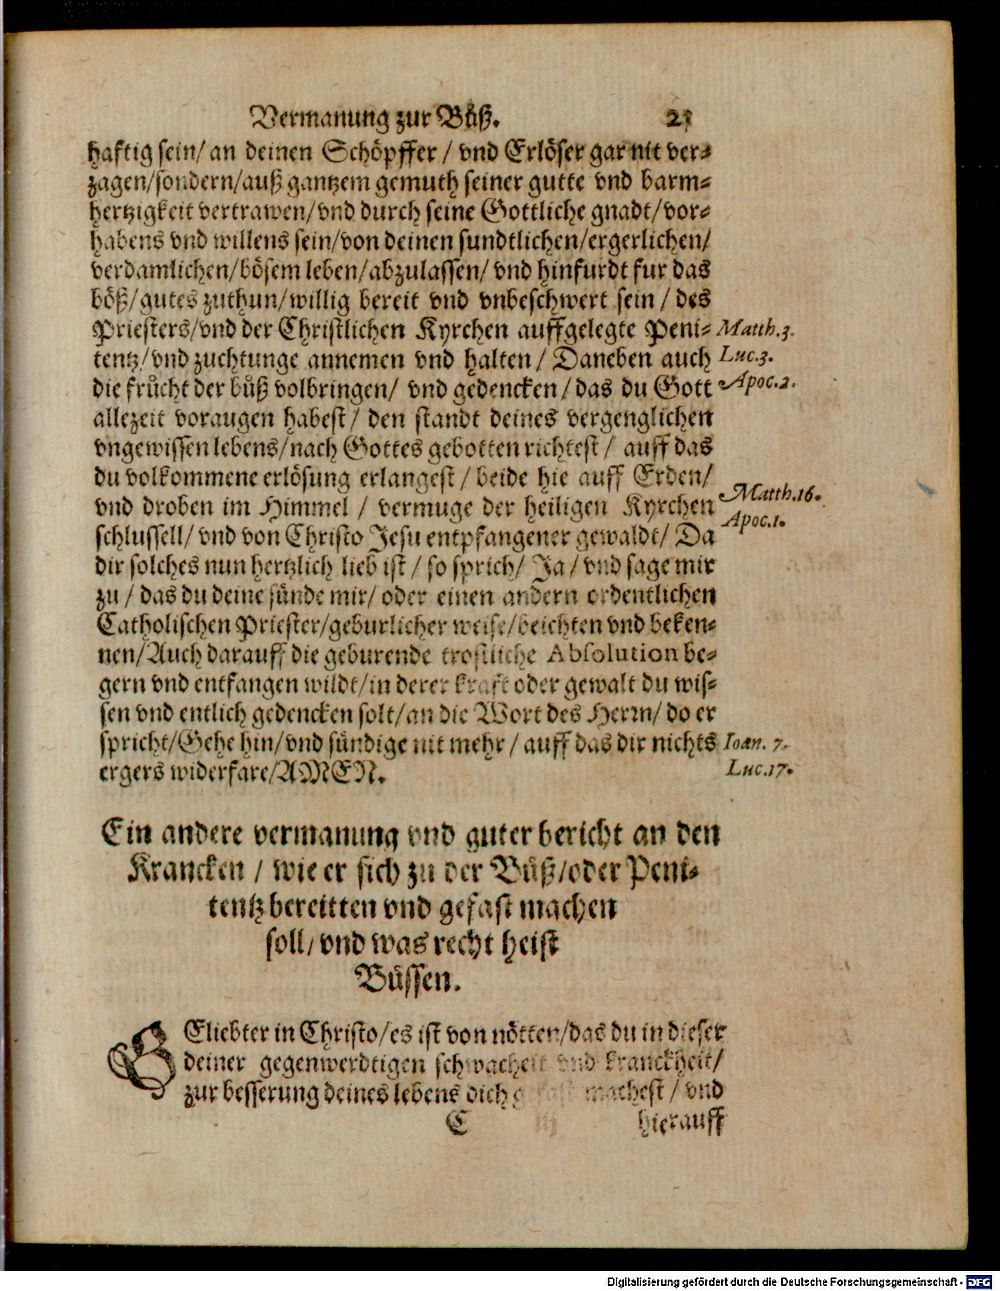 Vermanung zur Bůß. 21
haftig sein/ an deinen Schöpffer / vnd Erlöser gar nit ver⸗
zagen/sondern/auß gantzem gemuth seiner gutte vnd barm⸗
hertzigkeit vertrawen/vnd durch seine Gottliche gnadt/vor⸗
habens vnd willens sein/von deinen sundtlichen/ergerlichen/
verdamlichen/bösem leben/abzulassen/ vnd hinfurdt fur das
böß/gutes zuthun/willig bereit vnd vnbeschwert sein / des
Priesters/vnd der Christlichen Kyrchen auffgelegte Peni⸗ Matth.3.
tentz/vnd zuchtunge annemen vnd halten / Daneben auch Luc.3.
die frůcht der bůß volbringen/ vnd gedencken / das du Gott Apoc.2.
allezeit voraugen habest / den standt deines vergenglichen
vngewissen lebens/nach Gottes gebotten richtest / auff das
du volkommene erlösung erlangest / beide hie auff Erden/
vnd droben im Himmel / vermuge der heiligen Kyrchen Matth.16.
schlussell/ vnd von Christo Jesu entpfangener gewaldt/ Da Apoc.1.
dir solches nun hertzlich lieb ist / so sprich/ Ja / vnd sage mir
zu / das du deine sůnde mir/ oder einen andern ordentlichen
Catholischen Priester/geburlicher weise/beichten vnd beken⸗
nen/Auch darauff die geburende trostliche Absolution be⸗
gern vnd entfangen wildt/in derer kraft oder gewalt du wis⸗
sen vnd entlich gedencken solt/an die Wort des Herrn/ do er
spricht/Gehe hin/vnd sůndige nit mehr / auff das dir nichts Ioan. 7.
ergers widerfare/AMEN. Luc.17.
Ein andere vermanung vnd guter bericht an den
Krancken / wie er sich zu der Bůß/oder Peni⸗
tentz bereitten vnd gefast machen
soll/ vnd was recht heist
Bůssen.
GEliebter in Christo/es ist von nötten/das du in dieser
deiner gegenwerdtigen schwacheit vnd kranckheit/
zur besserung deines lebens dich machest / vnd
C hierauff
Digitalisierung gefördert durch die Deutsche Forschungsgemeinschaft - DFG